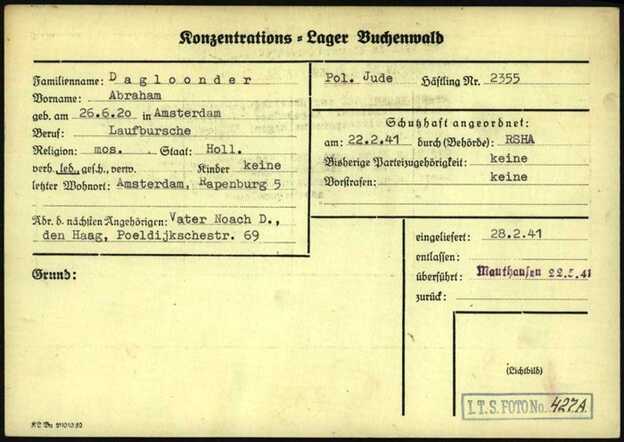 Konzentrations-Lager Buchenwald
Familienname: Dagloonder
Vorname: Abraham
geb. am 26.6.20 in Amsterdam
Beruf: Laufbursche
Religion: mos. Staat: Holl.
verh. led. gesch. verw. Kinder keine
letzter Wohnort: Amsterdam, Rapenburg 5
Adr. d. nächsten Angehörigen: Vater Noach D.,
den Haag, Poeldijkschestr. 69
Grund:
Pol. Jude Häftling Nr. 2355
Schutzhaft angeordnet:
am: 22.2.41 durch (Behörde): RSHA
Bisherige Parteizugehörigkeit: keine
Vorstrafen: keine
eingeliefert: 28.2.41
entlassen:
überführt: Mauthausen 22.5.41
zurück:
(Lichtbild)
I.T.S. FOTO No. 427A.